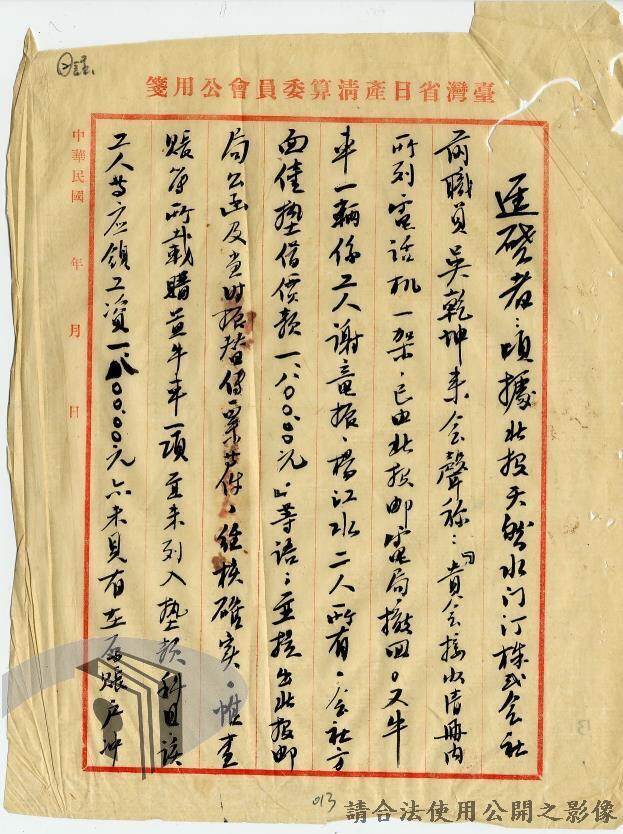 臺灣省日產清算委員會公用箋
逕啓者：頃據北投天然水门汀株式会社
前職員吳乾坤来会聲称：「貴会接收清冊内
所列電话机一架，已由北投邮電局撤回。又牛
車一輛係工人謝竜振、楊江水二人所有，会社方
面僅墊借價款一、八〇〇.〇〇元」等语；並提出北投邮
局公函及当时振替傳票等件，経核確实。惟查
賬簿所載購置牛車一項並未列入墊款科目该
工人等应領工資一、八〇〇.〇〇元亦未具有在原賬户冲
中華民國 年 月 日
013
請合法使用公開之影像